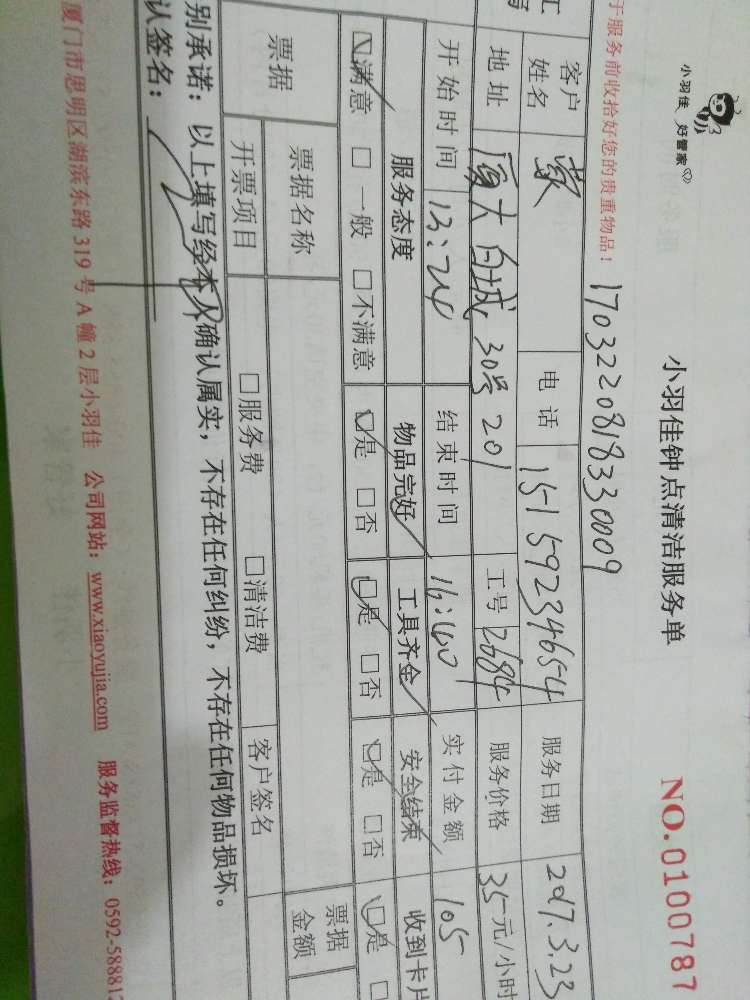 小羽佳 好管家
小羽佳钟点清洁服务单
NO.0100787
1703220818330009
于服务前收拾好您的贵重物品！
客户姓名 电话 15159234654 服务日期 2017.3.23
地址 厦大白城30号201 工号 2684 服务价格 35元/小时
开始时间 13:24 结束时间 16:40 实付金额 105
服务态度 物品完好 工具齐全 安全结束 收到卡片
满意 一般 不满意 是 否 是 否 是 否 是
票据 票据名称 票据金额
开票项目 服务费 清洁费 客户签名
别承诺：以上填写经本人确认属实，不存在任何纠纷，不存在任何物品损坏。
认签名：
厦门市思明区湖滨东路319号A幢2层小羽佳 公司网站：www.xiaoyujia.com 服务监督热线：0592-58881